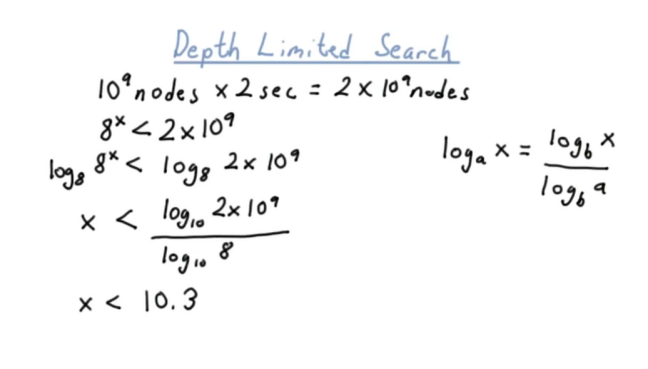 Depth Limited Search
10⁹ nodes × 2 sec = 2 × 10⁹ nodes
8ˣ < 2 × 10⁹
log₈ 8ˣ < log₈ 2 × 10⁹
x < log₁₀ 2 × 10⁹ / log₁₀ 8
x < 10.3
logₐ x = log_b x / log_b a